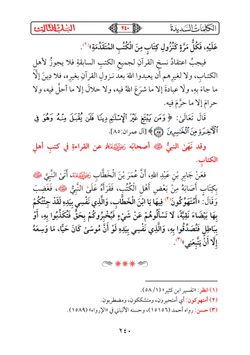 الكلمات السديدة
٢٤٠
السنة الثالثة
عَلَيْهِ، فَكُلُّ مَرَّةٍ كَنُزُولِ كِتَابٍ مِنَ الْكُتُبِ الْمُتَقَدِّمَةِ»(١).
فيجبُ اعتقادُ نسخِ القرآنِ لجميعِ الكتبِ السابقةِ فلا يجوزُ لأهلِ
الكتابِ، ولا لغيرِهم أن يعبدوا الله بعد نزولِ القرآنِ بغيرِه، فلا دِينَ إلَّا
ما جاء به، ولا عبادةَ إلا ما شرَعَ اللهُ فيه، ولا حلالَ إلا ما أحلَّ فيه، ولا
حرامَ إلا ما حرَّمَ فيه.
قال تعَالَى: ﴿وَمَن يَبْتَغِ غَيْرَ ٱلْإِسْلَٰمِ دِينًا فَلَن يُقْبَلَ مِنْهُ وَهُوَ فِي
ٱلْأٓخِرَةِ مِنَ ٱلْخَٰسِرِينَ ﴿٨٥﴾﴾ [آل عمران: ٨٥].
وقد نَهَىٰ النبيُّ ﷺ أصحابَه رَضِيَ اللهُ عَنْهُمْ عن القراءةِ في كتبِ أهلِ
الكتابِ.
فعَنْ جَابِرِ بْنِ عَبْدِ اللهِ، أَنَّ عُمَرَ بْنَ الْخَطَّابِ رَضِيَ اللهُ عَنْهُ، أَتَى النَّبِيَّ ﷺ
بِكِتَابٍ أَصَابَهُ مِنْ بَعْضِ أَهْلِ الْكُتُبِ، فَقَرَأَهُ عَلَىٰ النَّبِيِّ ﷺ، فَغَضِبَ
وَقَالَ: «أَمُتَهَوِّكُونَ(٢) فِيهَا يَا ابْنَ الْخَطَّابِ، وَالَّذِي نَفْسِي بِيَدِهِ لَقَدْ جِئْتُكُمْ
بِهَا بَيْضَاءَ نَقِيَّةً، لَا تَسْأَلُوهُمْ عَنْ شَيْءٍ فَيُخْبِرُوكُمْ بِحَقٍّ فَتُكَذِّبُوا بِهِ، أَوْ
بِبَاطِلٍ فَتُصَدِّقُوا بِهِ، وَالَّذِي نَفْسِي بِيَدِهِ لَوْ أَنَّ مُوسَىٰ كَانَ حَيًّا، مَا وَسِعَهُ
إِلَّا أَنْ يَتَّبِعَنِي»(٣).
(١) انظر: «تفسير ابن كثير» (١/ ٥٨).
(٢) أمتهوكون: أي أمتحيرون، ومتشككون، ومضطربون.
(٣) حسن: رواه أحمد (١٥١٥٦)، وحسنه الألباني في «الإرواء» (١٥٨٩).
٢٤٠